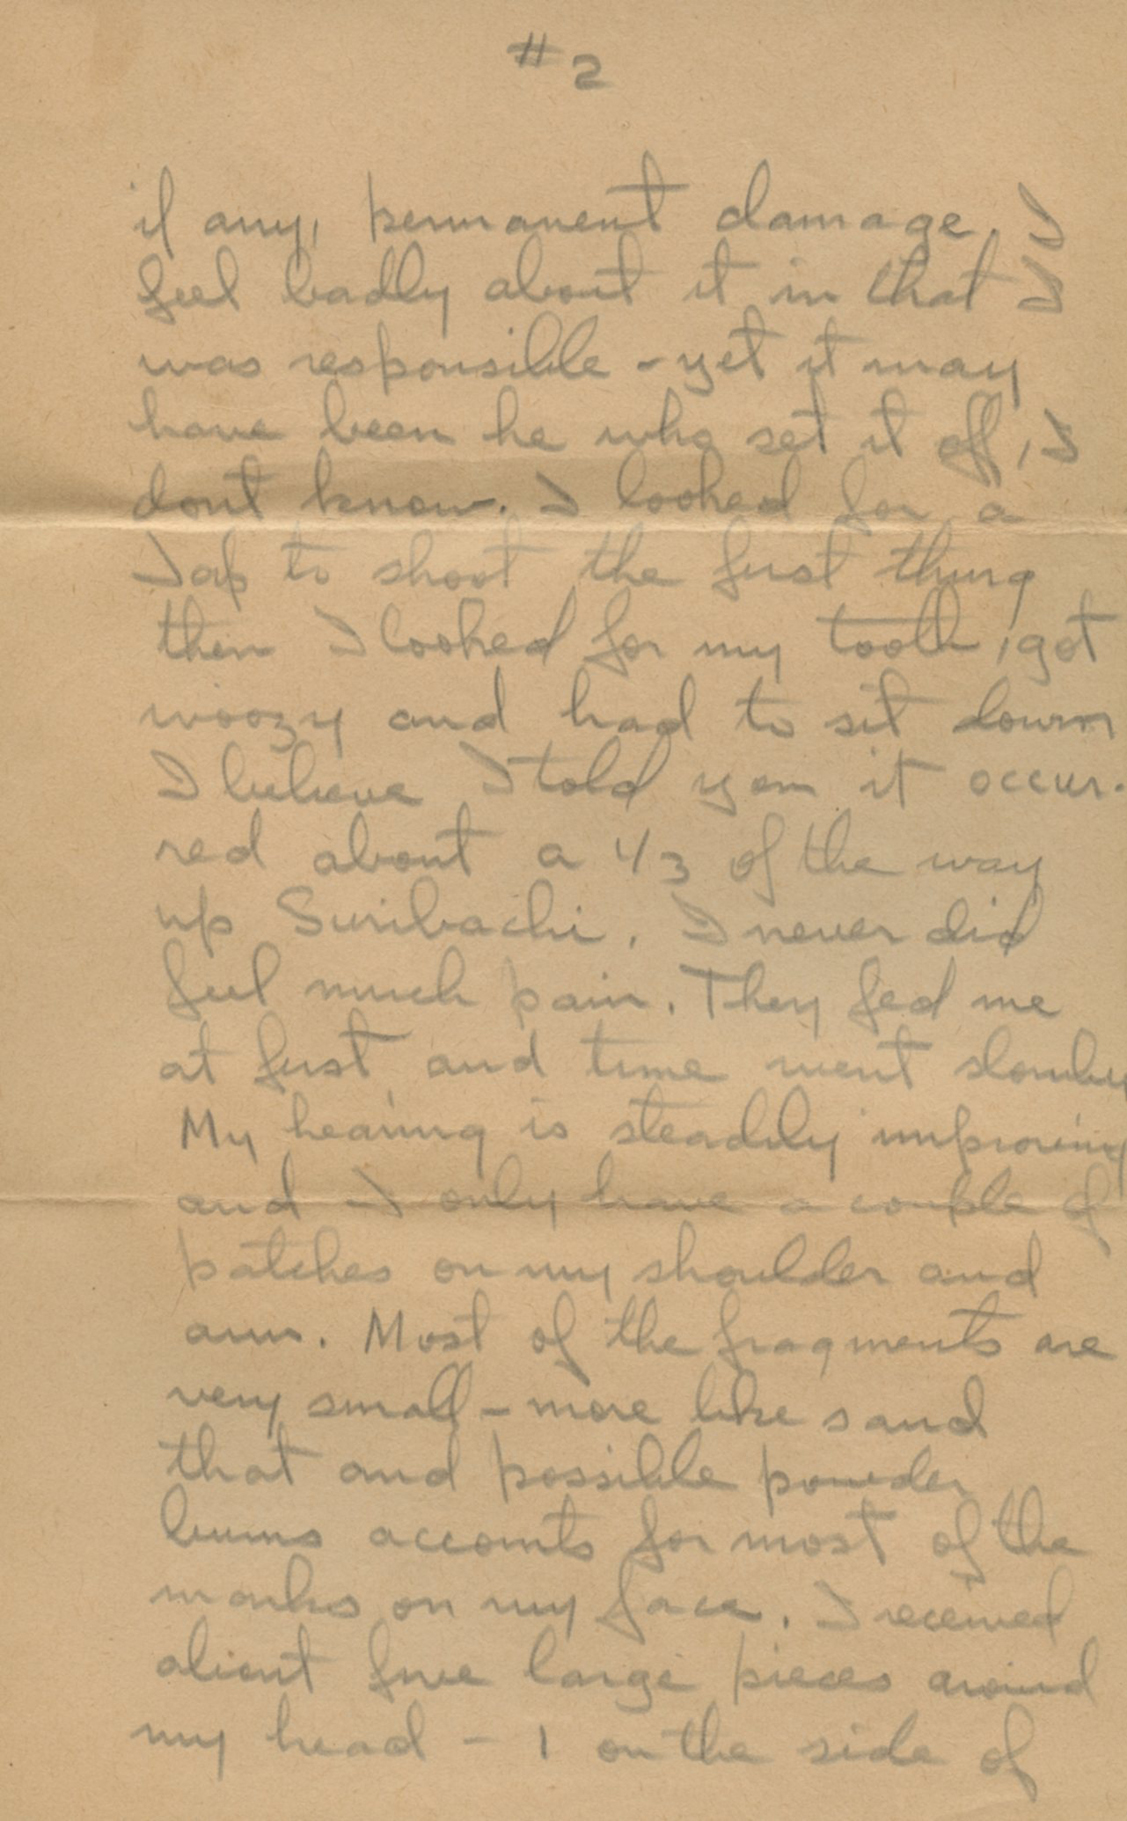 #2
if any, permanent damage. I
feel badly about it in that I
was responsible - yet it may
have been he who set it off, I
dont know. I looked for a
Jap to shoot the first thing
then I looked for my tooth, got
woozy and had to sit down
I believe I told you it occur-
red about a 1/3 of the way
up Suribachi. I never did
feel much pain. They fed me
at first and time went slowly
My hearing is steadily improving
and I only have a couple of
patches on my shoulder and
arm. Most of the fragments are
very small - more like sand
that and possible powder
burns accounts for most of the
marks on my face. I received
about five large pieces around
my head - 1 on the side of